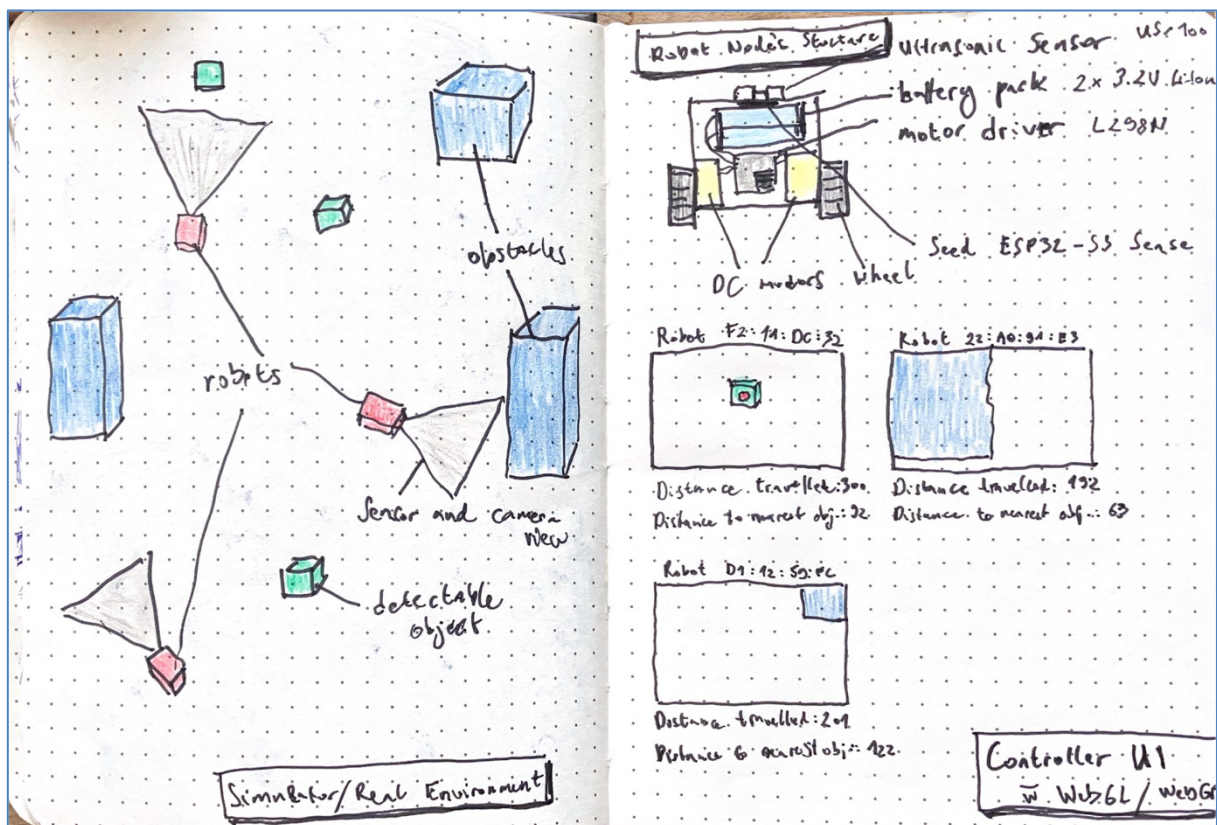 obstacles
robots
Sensor and camera
view
detectable
object
Simulator/Real Environment
Robot Node's Stucture
Ultrasonic Sensor US-100
battery pack 2x 3.2V Li-Ion
motor driver L298N
Seed ESP32-S3 Sense
DC motors wheel
Robot F2:11:DC:32
Distance travelled:300
Distance to nearest obj.:92
Robot 22:A0:91:E3
Distance travelled: 192
Distance to nearest obj.: 63
Robot D1:12:59:FC
Distance travelled:201
Distance to nearest obj.: 122
Controller UI
w WebGL /